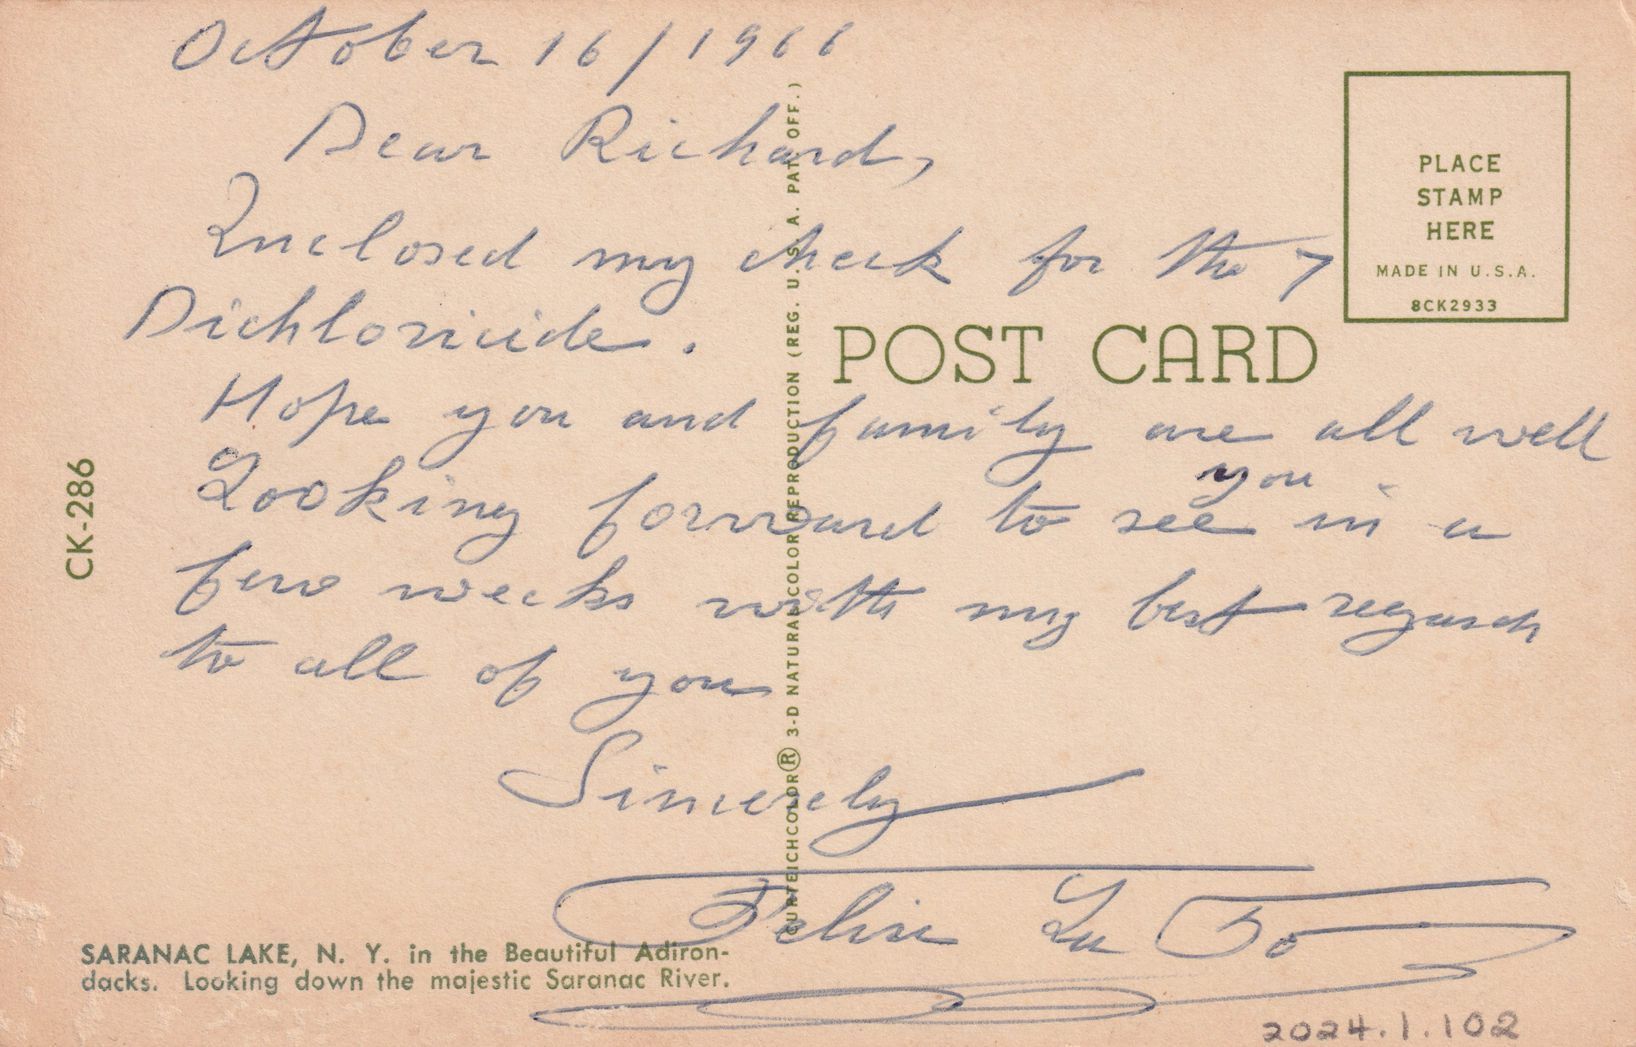 October 16/1966
Dear Richard,
Inclosed my check for the 7
Dichloricide.
Hope you and family are all well
Looking forward to see you in a
few weeks with my best regards
to all of you
Sincerely
Felix
PLACE
STAMP
HERE
MADE IN U.S.A.
8CK2933
POST CARD
CK-286
CURTEICHCOLOR® 3-D NATURAL COLOR REPRODUCTION (REG. U. S. A. PAT. OFF.)
SARANAC LAKE, N. Y. in the Beautiful Adiron-
dacks. Looking down the majestic Saranac River.
2024.1.102